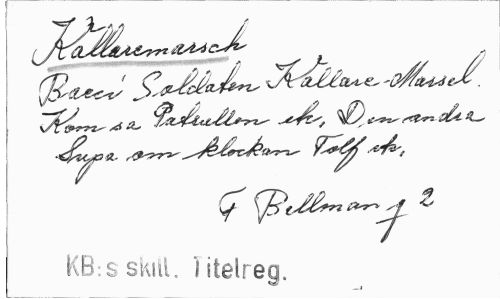 Källaremarsch
Bacci Soldaten Källare-Marsch.
Kom sa Patrullen etc, Den andra
Supa om klockan Tolf etc,
F Bellman q 2
KB:s skill. Titelreg.